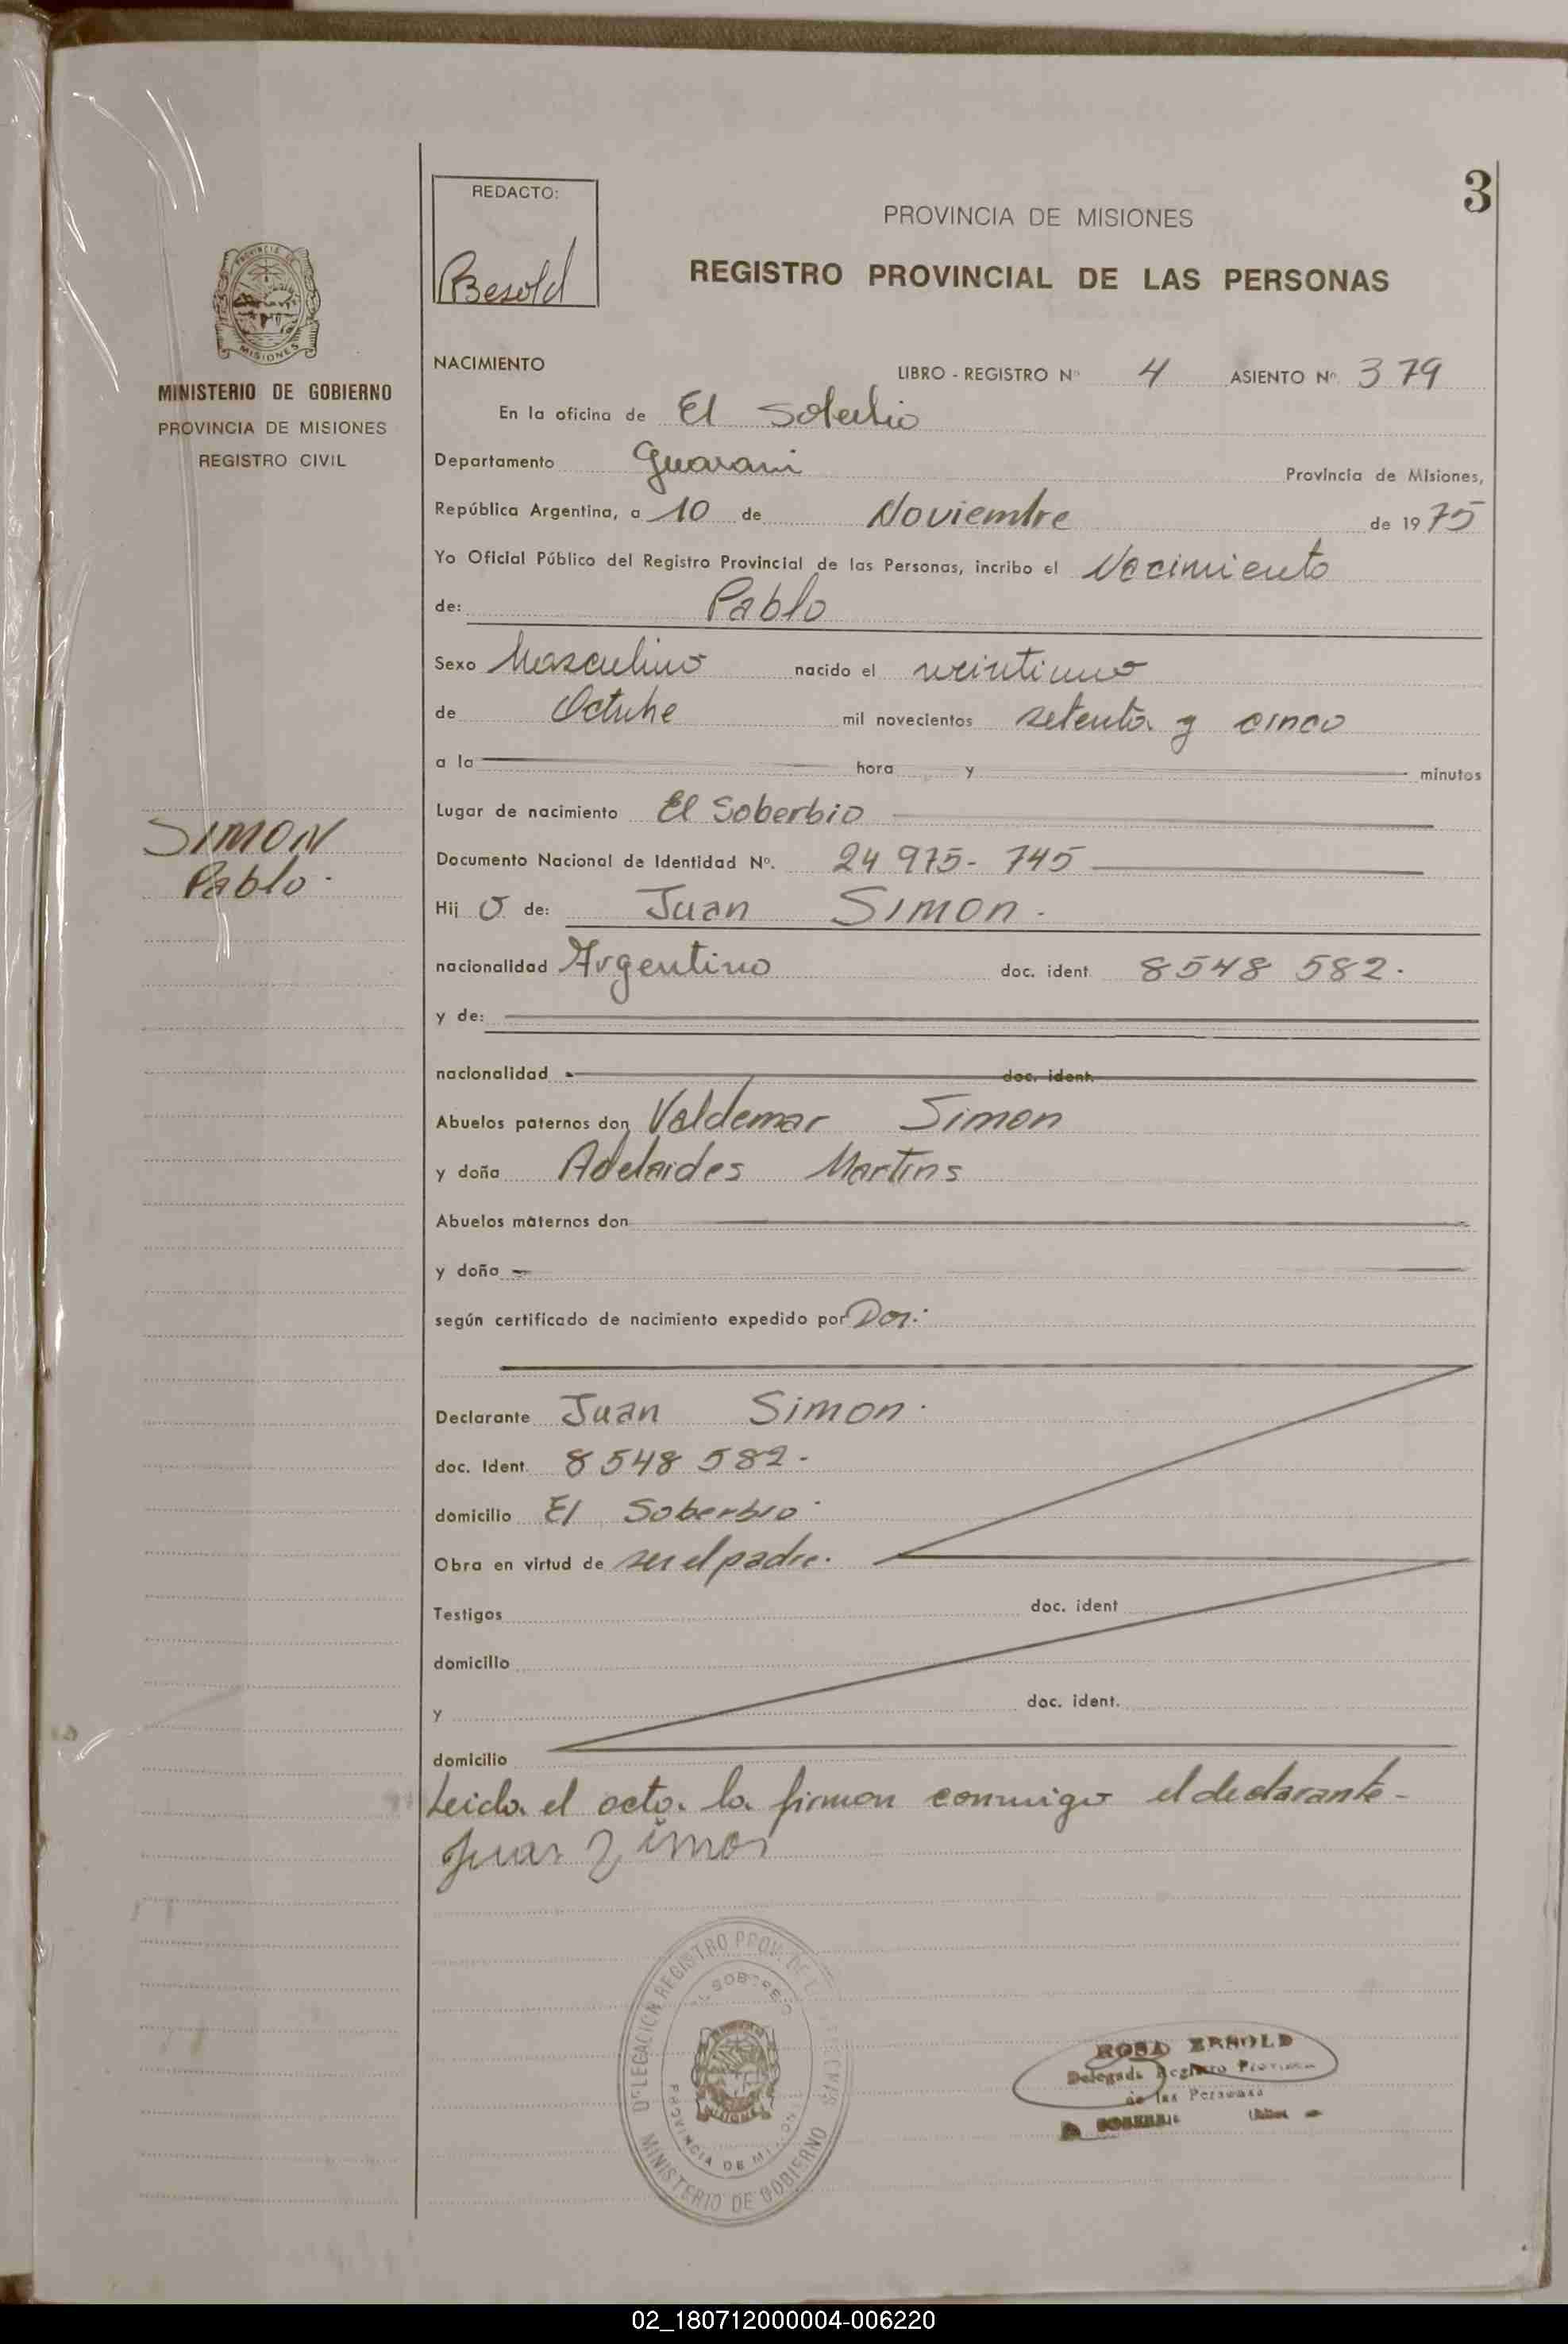 3
REDACTO:
Besold
PROVINCIA DE MISIONES
REGISTRO PROVINCIAL DE LAS PERSONAS
PROVINCIA DE
MISIONES
MINISTERIO DE GOBIERNO
PROVINCIA DE MISIONES
REGISTRO CIVIL
NACIMIENTO
LIBRO - REGISTRO Nº 4 ASIENTO Nº 379
En la oficina de El Soberbio
Departamento Guarani Provincia de Misiones,
República Argentina, a 10 de Noviembre de 1975
Yo Oficial Público del Registro Provincial de las Personas, incribo el Nacimiento
de: Pablo
Sexo Masculino nacido el veintiuno
de Octubre mil novecientos setenta y cinco
a la hora y minutos
Lugar de nacimiento El Soberbio
SIMON
Pablo.
Documento Nacional de Identidad Nº. 24 975- 745
Hij o de: Juan SIMON.
nacionalidad Argentino doc. ident. 8548 582.
y de:
nacionalidad doc. ident.
Abuelos paternos don Valdemar Simon
y doña Adelaides Martins
Abuelos maternos don
y doña
según certificado de nacimiento expedido por
Declarante Juan Simon.
doc. Ident. 8548 582.
domicilio El Soberbio
Obra en virtud de ser el padre.
Testigos doc. ident
domicilio
y doc. ident.
domicilio
Leida el acta la firman conmigo el declarante-
Juan Simon
DELEGACION REGISTRO PROV. DE L
EL SOBERBIO
PROVINCIA DE MISIONES
MISIONES
MINISTERIO DE GOBIERNO
ROSA BESOLD
Delegada Registro Provincial
de las Personas
EL SOBERBIO
02_180712000004-006220